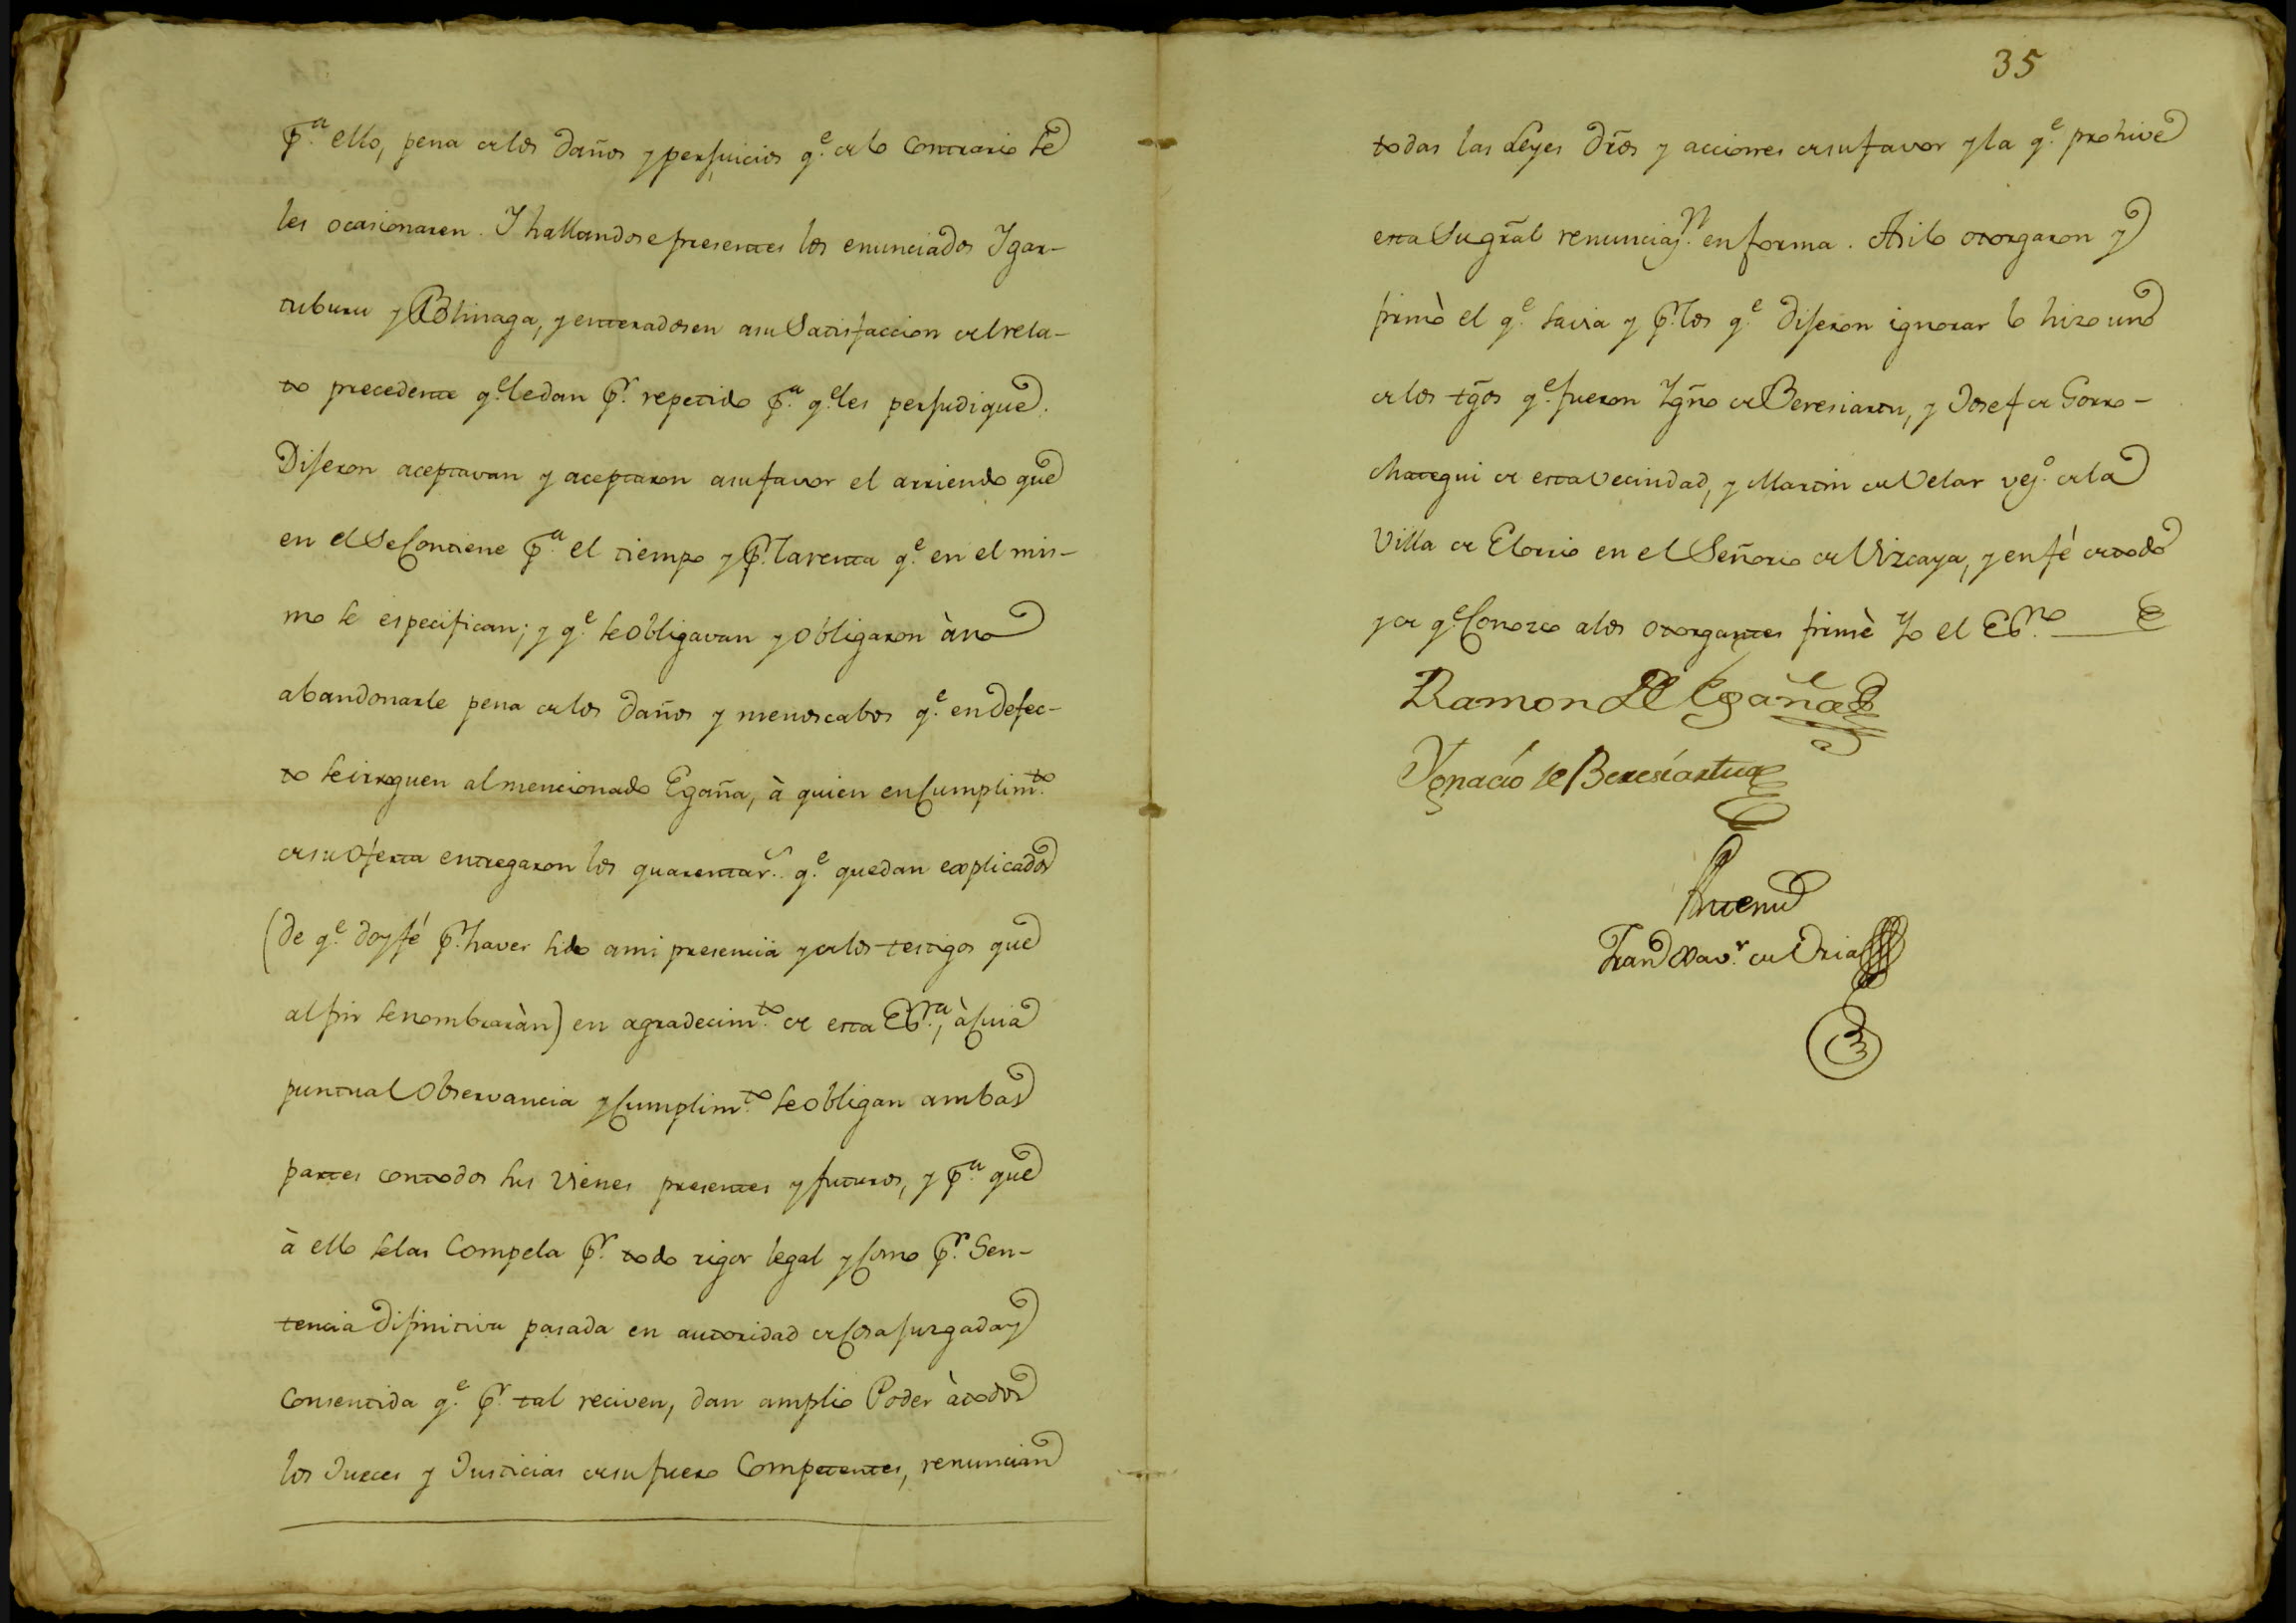 p.ª ello, pena de los daños y perjuicios q.e de lo contrario se
les ocasionaren. Y hallandose presentes los enunciados Ygar-
tuburu y enterados en a su Satisfaccion del rela-
to precedente q.e le dan p.r repetido p.ª q.e les perjudique.
Dijeron aceptavan y aceptaron a su favor el arriendo que
en el Se Contiene p.ª el tiempo y p.r la renta q.e en el mis-
mo se especifican; y q.e se obligavan y obligaron à no
abandonarle pena de los daños y menoscabos q.e en defec-
to se irroguen al mencionado Egaña, à quien en Cumplim.to
de su oferta entregaron los quarenta r.s q.e quedan explicados
(de q.e doy fé p.r haver sido a mi presencia y de los testigos que
al fin se nombraràn) en agradecim.to de esta Es.ra, à cuia
puntual Observancia y Cumplim.to se obligan ambas
partes con todos sus vienes presentes y futuros, y p.ª que
à ello se las Compela p.r todo rigor legal y Como p.r Sen-
tencia difinitiva pasada en autoridad de Cosa juzgada y
Consentida q.e p.r tal reciven, dan amplio Poder à todos
los Jueces y Justicias de su fuero Competentes, renuncian
35
todas las Leyes dr̃os y acciones de su favor y la q.e prohive
esta Su gr̃al renunciaz.n en forma. Asi lo otorgaron y
firmò el q.e savia y p.r los q.e dijeron ignorar lo hizo uno
de los tg̃os q.e fueron Ygñ̃o de Beresiartu, y Josef de Gorro-
chategui de esta vecindad, y Martin de Velar vez.o de la
Villa de Elorrio en el Señorio de Vizcaya, y en fé de todo
y de q.e Conozco a los otorgantes firmè Yo el Es.no
Ramon de Egaña
Ygnacio de Beresiartua
Ante mi
Fran.co Xav.r de Oria